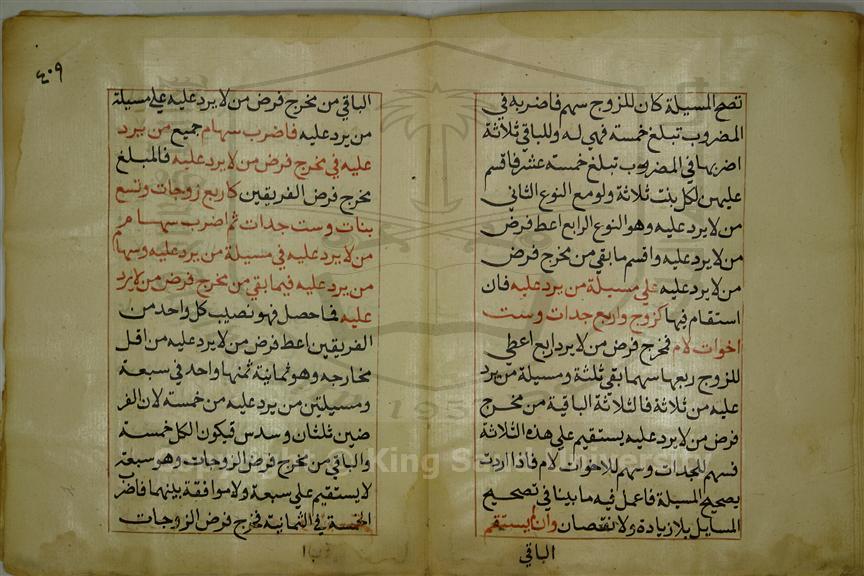 تصح المسيلة كان للزوج سهم فاضربه في
المضروب تبلغ خمسة فهي له وللباقي ثلاثة
اضربها في المضروب تبلغ خمسة عشر فاقسم
عليهن لكل بنت ثلاثة ولو مع النوع الثاني
من لا يرد عليه وهو النوع الرابع اعط فرض
من لا يرد عليه واقسم ما بقي من مخرج فرض
من لا يرد عليه علي مسيلة من يرد عليه فان
استقام فيها كزوج واربع جدات وست
اخوات لام فمخرج فرض من لا يرد اربع اعطي
للزوج ربعها سهما بقي ثلثة ومسيلة من يرد
عليه من ثلاثة فالثلاثة الباقية من مخرج
فرض من لا يرد عليه يستقيم علي هذه الثلاثة
فسهم للجدات وسهم للاخوات لام فاذا اردت
يصحيح المسيلة فاعمل فيه ما بينا في تصحيح
المسايل بلا زيادة ولا نقصان وان لم يستقم
الباقي
٤٠٩
الباقي من مخرج فرض من لا يرد عليه علي مسيلة
من يرد عليه فاضرب سهام جميع من يرد
عليه في مخرج فرض من لا يرد عليه فالمبلغ
مخرج فرض الفريقين كاربع زوجات وتسع
بنات وست جدات ثم اضرب سهام
من لا يرد عليه في مسيلة من يرد عليه وسهام
من يرد عليه فيما بقي من مخرج فرض من لا يرد
عليه فما حصل فهو نصيب كل واحد من
الفريقين اعط فرض من لا يرد عليه من اقل
مخارجه وهو ثمانية ثمنها واحد في سبعة
ومسيلتين من يرد عليه من خمسة لان الفر
ضين ثلثان وسدس فيكون الكل خمسة
والباقي من مخرج فرض الزوجات وهو سبعة
لا يستقيم علي سبعة ولا موافقة بينهما فاضرب
الخمسة في الثمانية فمخرج فرض الزوجات
King Saud University
195